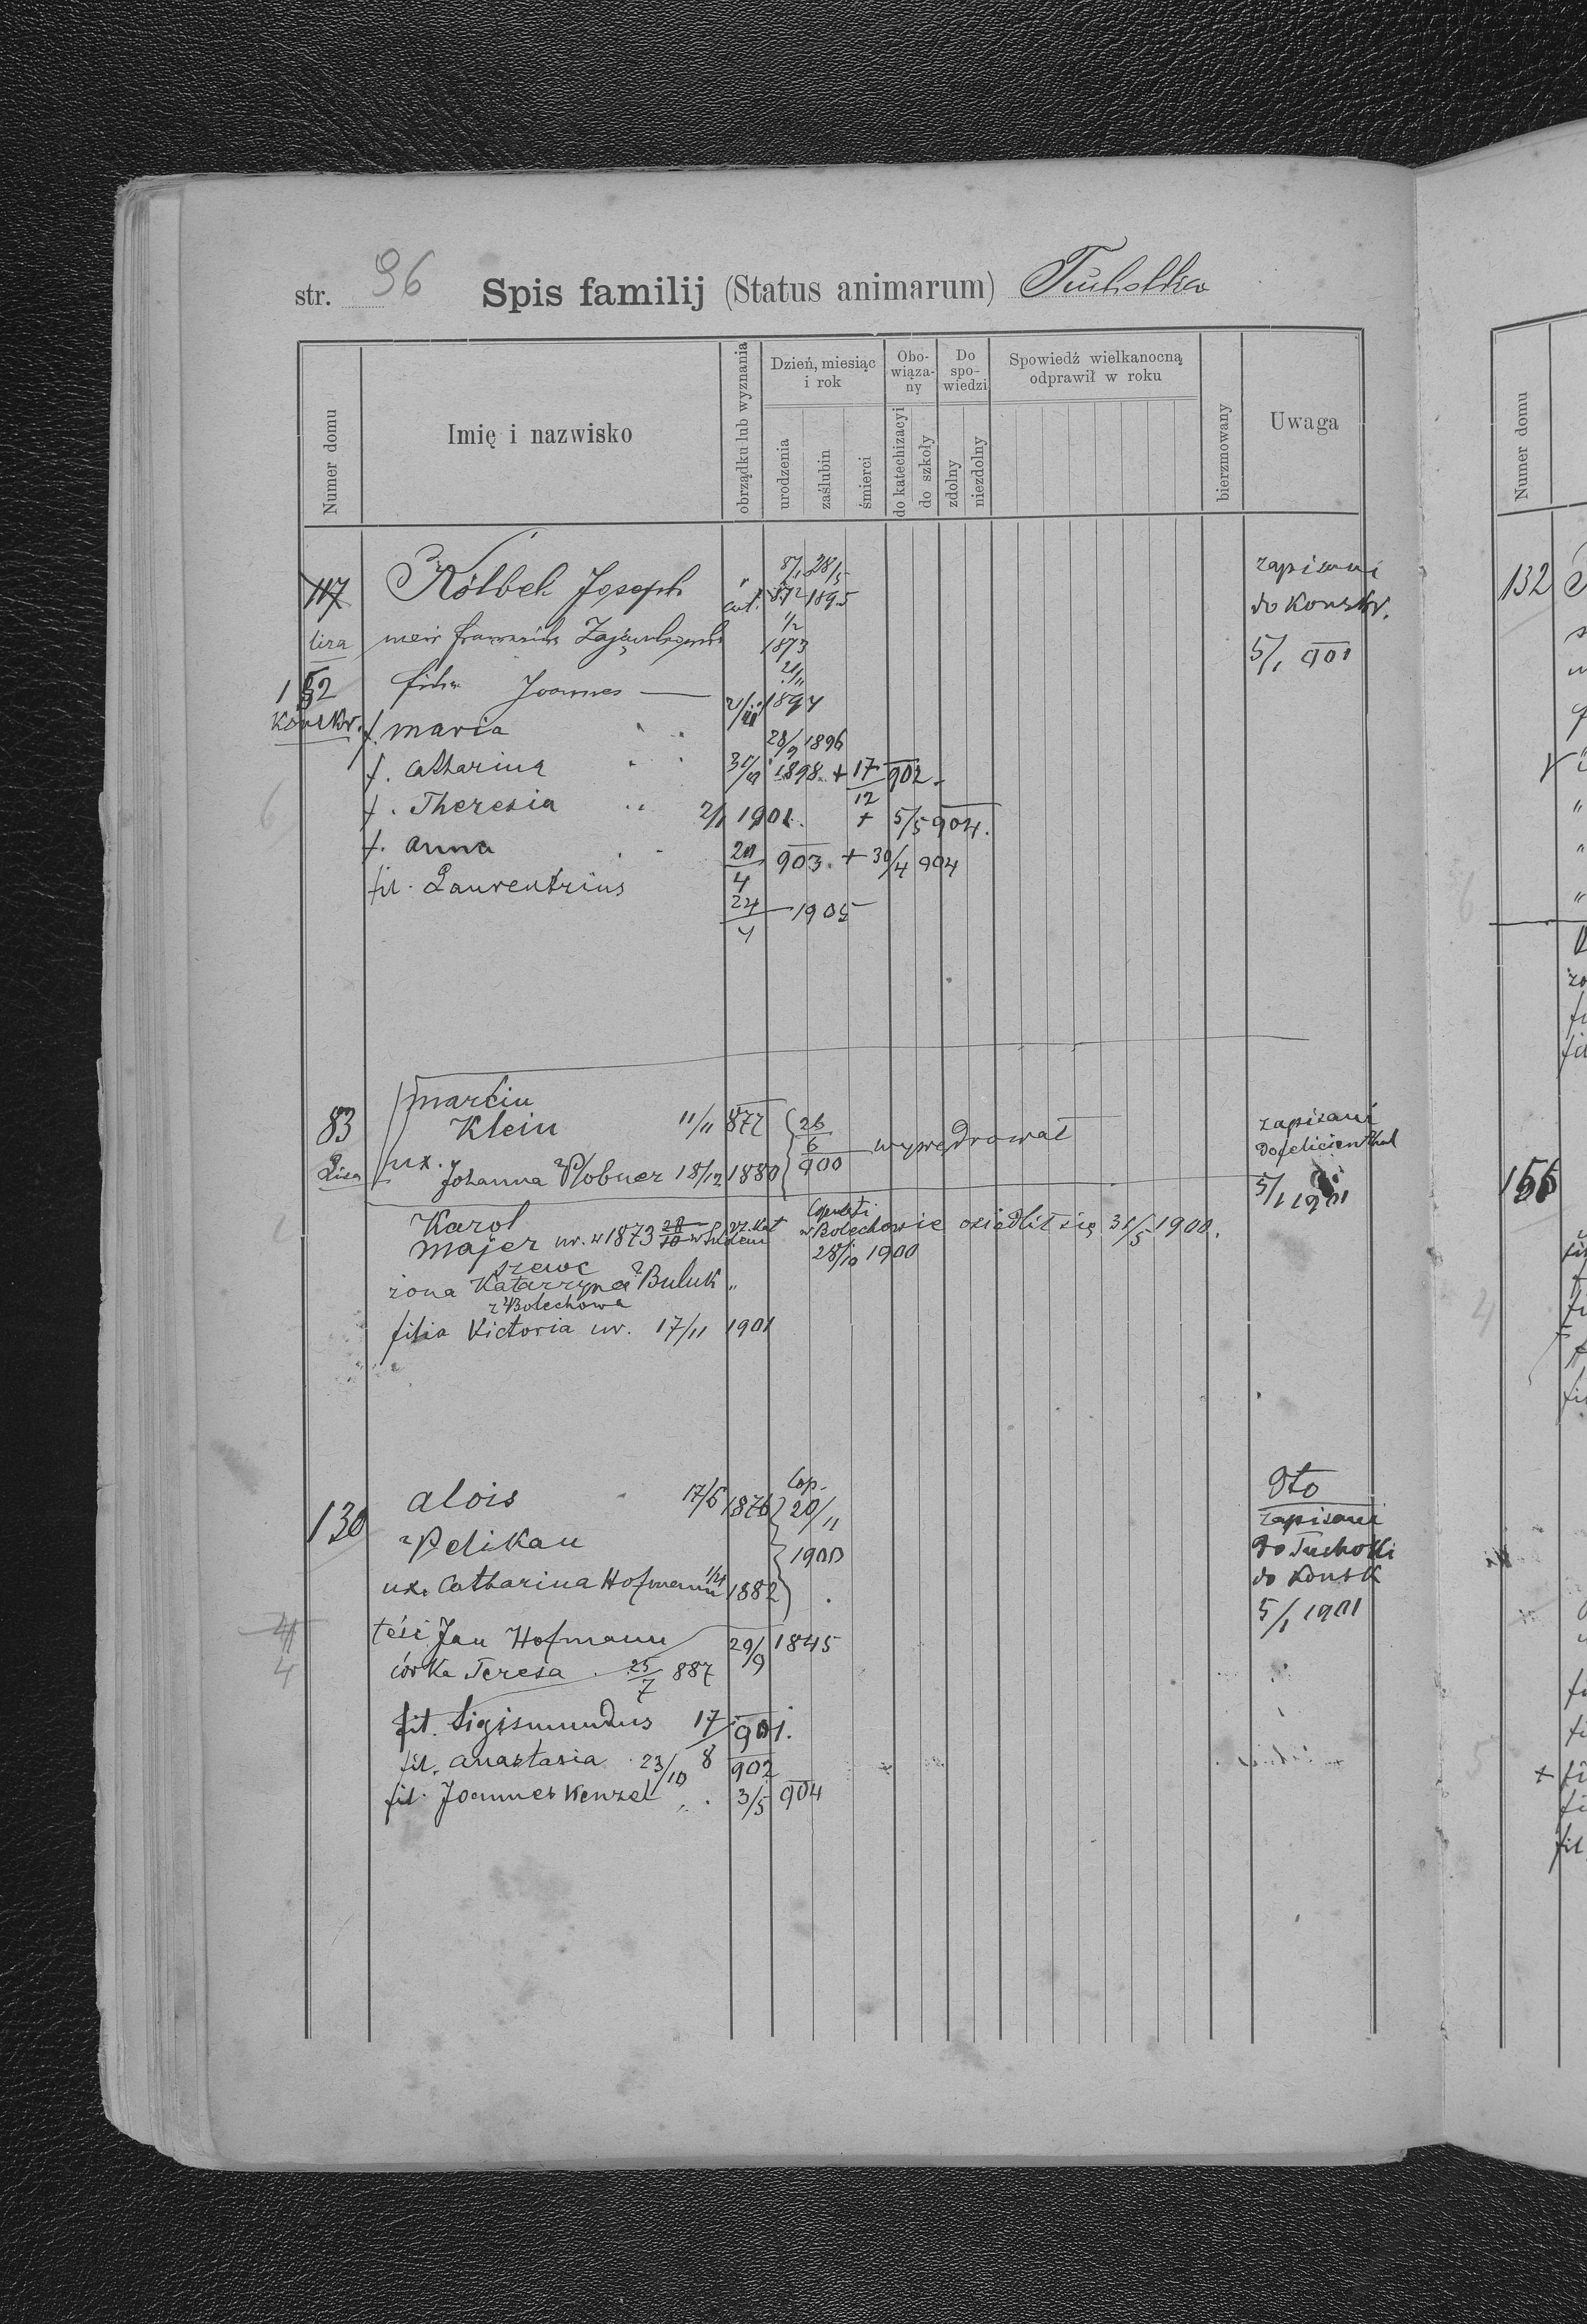 str. 96 Spis familij (Status animarum) Tucholka
Numer domu
Imię i nazwisko
obrządku lub wyznania
Dzień, miesiąc i rok
urodzenia
zaślubin
śmierci
Obo-wiąza-ny
do katechizacyi
do szkoły
Do spo-wiedzi
zdolny
niezdolny
Spowiedź wielkanocną odprawił w roku
bierzmowany
Uwaga
Numer domu
117 Kölbel Joseph 8/1 872 28/5 1895 zapisani
do Konskr.
5/1 901
1/2 1873
152 Joannes 1894
Konskr. f. Maria 28/9 1896
f. Catharina 1898 + 17/12 902
f. Theresia 2/1 1901. + 5/5 904.
f. Anna 20/4 903. + 30/4 904
fil. Laurentzius 24/4 1905
132
83 Marcin
Klein 11/11 877 26/6 900 wywędrował zapisani
do felicienthal
ux. Johanna Plobner 18/12 1880
5/1 1901
Karol
Majer ur. w 1873
w Bolechowie osiedlił się 31/5 1900.
28/10 1900
szewc
żona Katarzyna Buluk „
z Bolechowa
filia Victoria ur. 17/11 1901
130 Alois 17/6 1876 Cop. 20/11 1900 dto
Pelikan
zapisani
do Tucholki
do Konsk
5/1 1901
ux. Catharina Hofmann 1882
teśc Jan Hofmann 29/9 1845
córka Teresa 25/7 887
fil. Sigismundus 17/8 901.
fil. Anastasia 23/10 902
fil. Joannes Wenzel 3/5 904